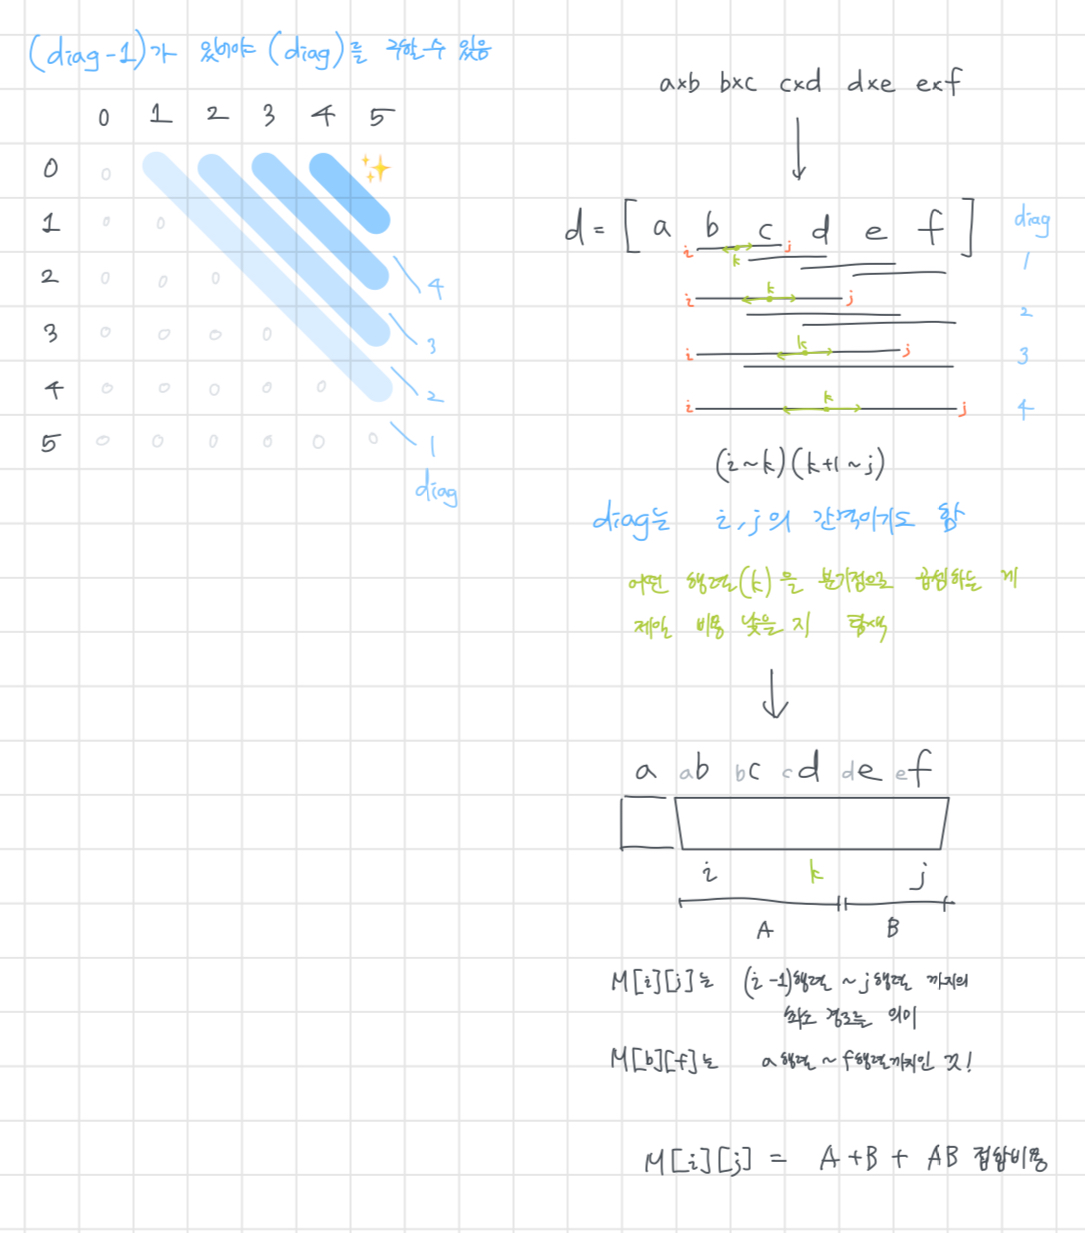 (diag-1)가 있어야 (diag)를 구할 수 있음
0 1 2 3 4 5
0 0
1 0 0
2 0 0 0
3 0 0 0 0
4 0 0 0 0 0
5 0 0 0 0 0 0
4
3
2
1
diag
axb bxc cxd dxe exf
d = [ a b c d e f ]
diag
i k j
1
i k j
2
i k j
3
i k j
4
(i~k)(k+1~j)
diag는 i,j의 간격이기도 함
어떤 행렬(k)을 분기점으로 곱셈하는 게
제일 비용 낮을 지 탐색
a ab bc cd de ef
i k j
A B
M[i][j]는 (i-1)행렬 ~ j행렬 까지의
최소 경로를 의미
M[b][f]는 a행렬 ~ f행렬까지인 것!
M[i][j] = A+B + AB 접합비용